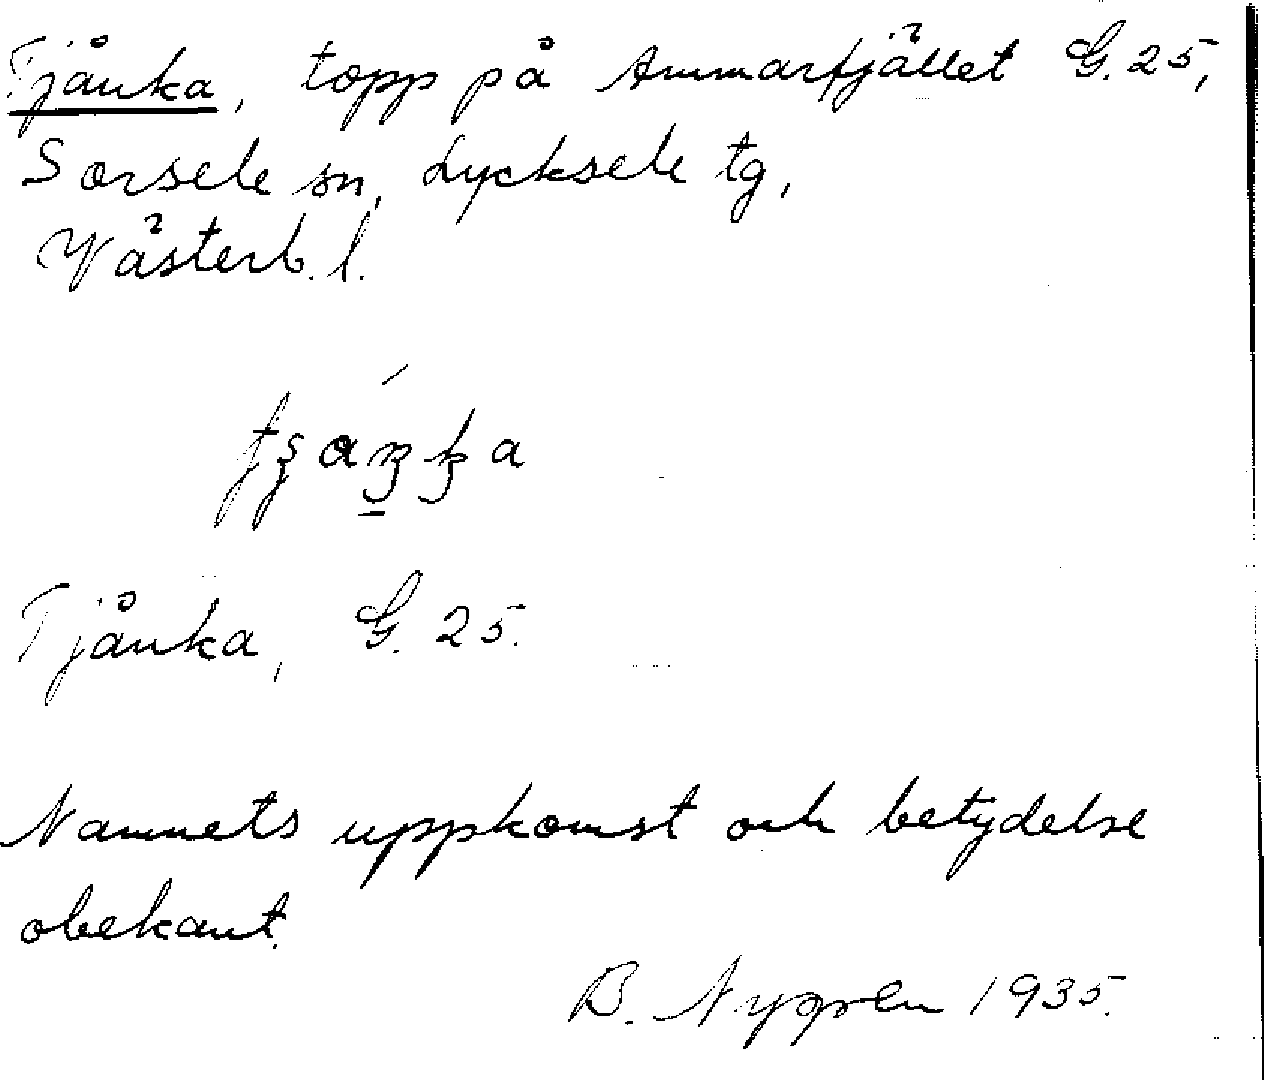 Tjånka, topp på Ammarfjället G. 25,
Sorsele sn, Lycksele tg,
Västerb. l.
Tjånka, G. 25.
Namnets uppkomst och betydelse
obekant.
B. Nygren 1935.